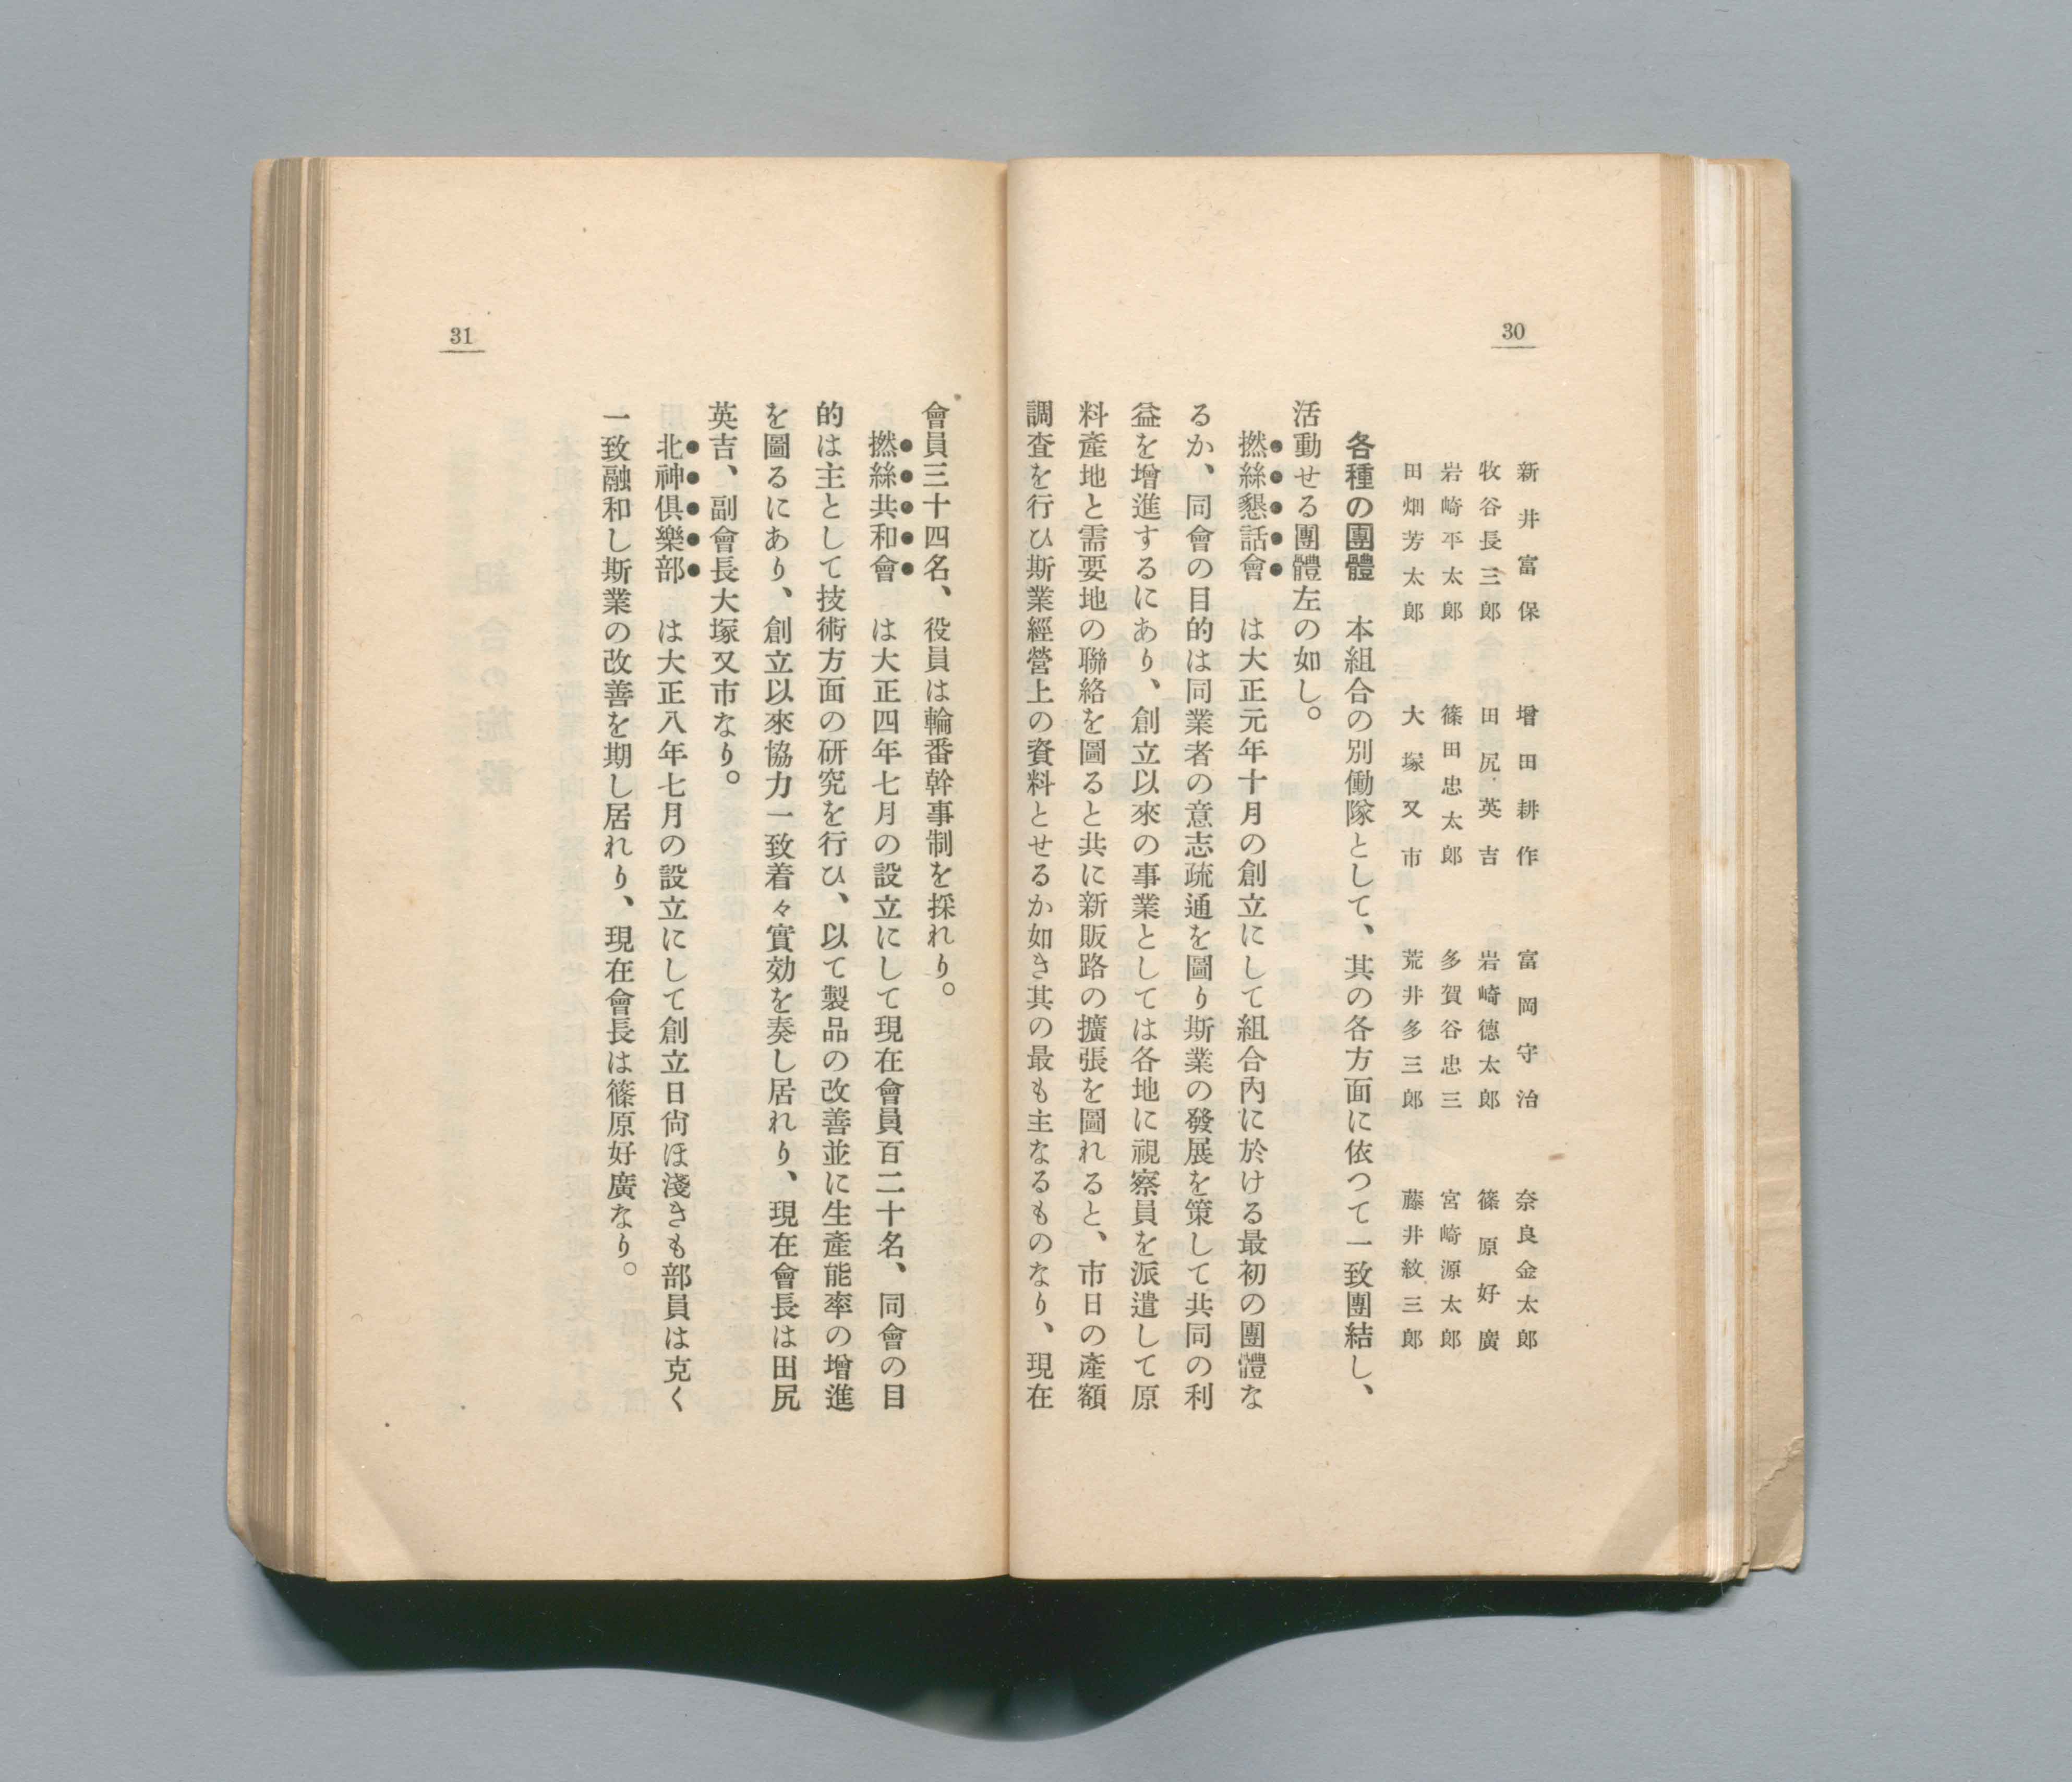 30
新井富保 增田耕作 富岡守治 奈良金太郎
牧谷長三郎 田尻英吉 岩崎德太郎 篠原好廣
岩崎平太郎 篠田忠太郎 多賀谷忠三 宮崎源太郎
田畑芳太郎 大塚又市 荒井多三郎 藤井紋三郎
各種の團體 本組合の別働隊として、其の各方面に依つて一致團結し、
活動せる團體左の如し。
撚絲懇話會 は大正元年十月の創立にして組合內に於ける最初の團體な
るか、同會の目的は同業者の意志疏通を圖り斯業の發展を策して共同の利
益を增進するにあり、創立以來の事業としては各地に視察員を派遣して原
料產地と需要地の聯絡を圖ると共に新販路の擴張を圖れると、市日の產額
調査を行ひ斯業經營上の資料とせるか如き其の最も主なるものなり、現在
31
會員三十四名、役員は輪番幹事制を採れり。
撚絲共和會 は大正四年七月の設立にして現在會員百二十名、同會の目
的は主として技術方面の研究を行ひ、以て製品の改善並に生產能率の增進
を圖るにあり、創立以來協力一致着々實効を奏し居れり、現在會長は田尻
英吉、副會長大塚又市なり。
北神俱樂部 は大正八年七月の設立にして創立日尙ほ淺きも部員は克く
一致融和し斯業の改善を期し居れり、現在會長は篠原好廣なり。